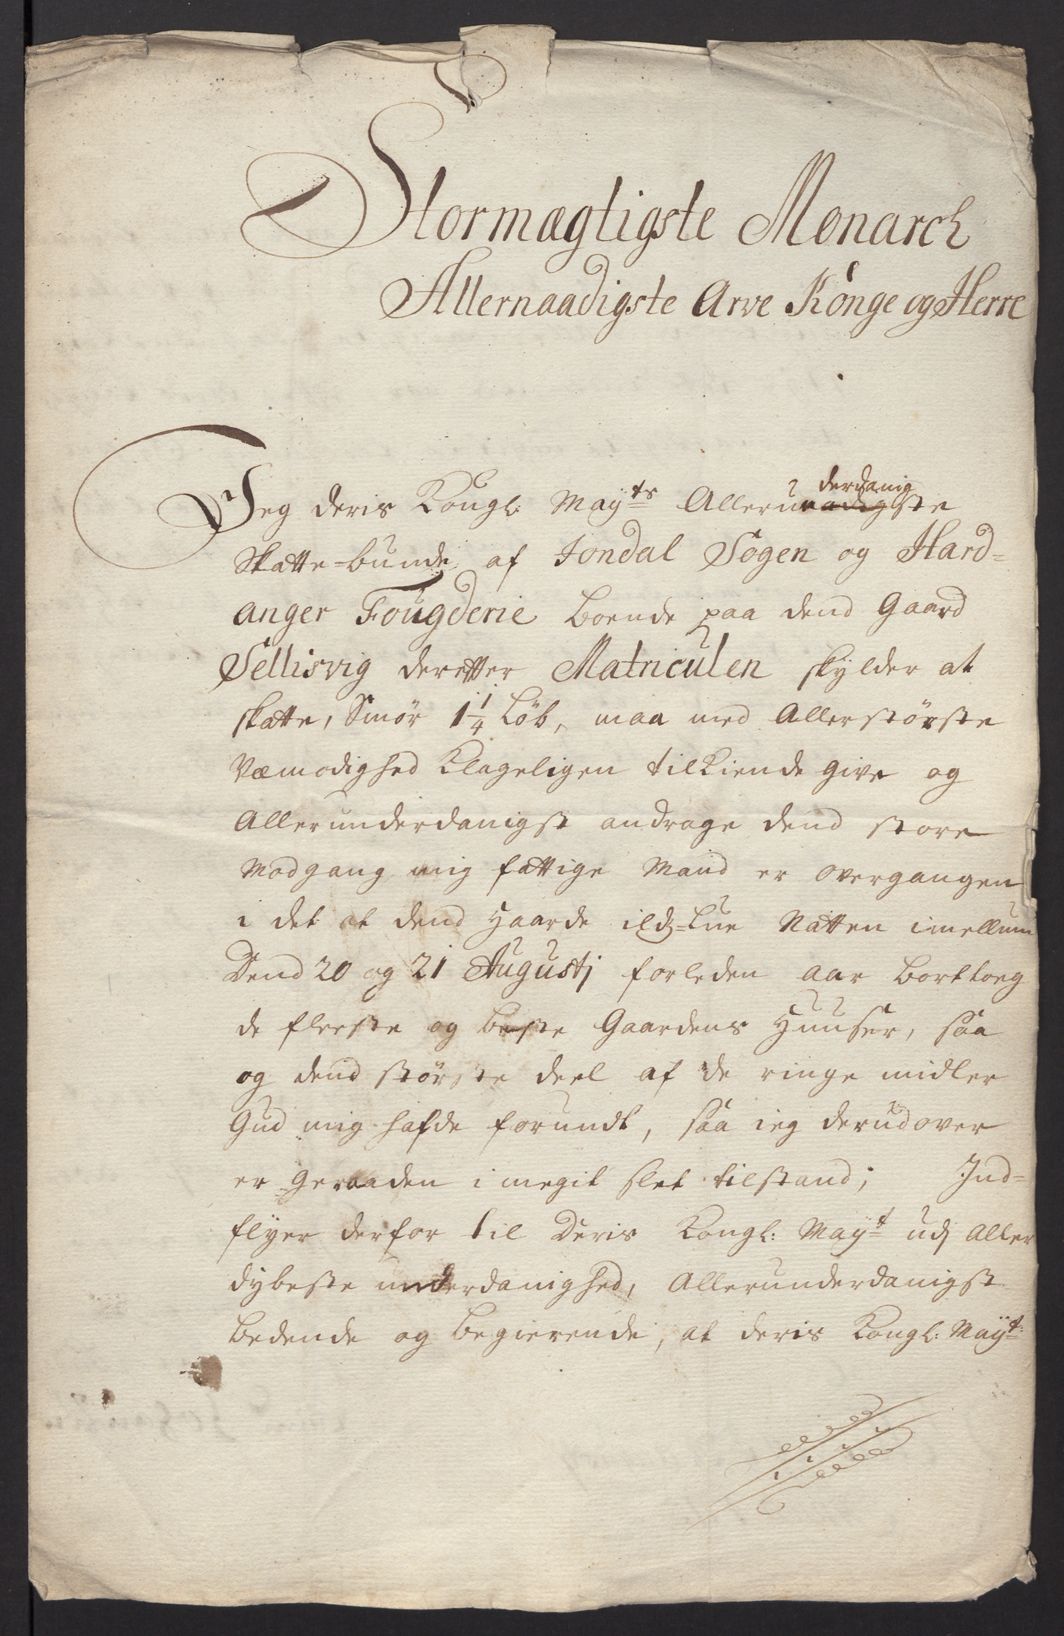 Stormægtigste Monarch
Allernaadigste Arve Konge og Herre
Jeg deris Kongl: Mayts Allerunderdanigste
Skatte-bunde af Jondal Sogen og Hard-
anger Fougderie boende paa dend Gaard
Sellisvig deretter Matriculen skylder at
skatte, Smør 1 1/4 Løb, maa med Allerstørste
Væmodighed Klageligen tilkiende give og
Allerunderdanigst andrage dend store
Modgang mig fattige Mand er overgangen
i det at dend Haarde ilds-lue Natten imellum
Dend 20 og 21 Augustj forleden aar borttoeg
de fleeste og beste Gaardens Huuser, saa
og dend største deel af de ringe midler
Gud mig hafde forundt, saa ieg derudover
er Geraaden i megit slet tilstand; Ind-
flyer derfor til Deris Kongl: Mayt udj Aller
dybeste underdanighed, Allerunderdanigst
bedende og begierende, at deris Kongl: Mayt: